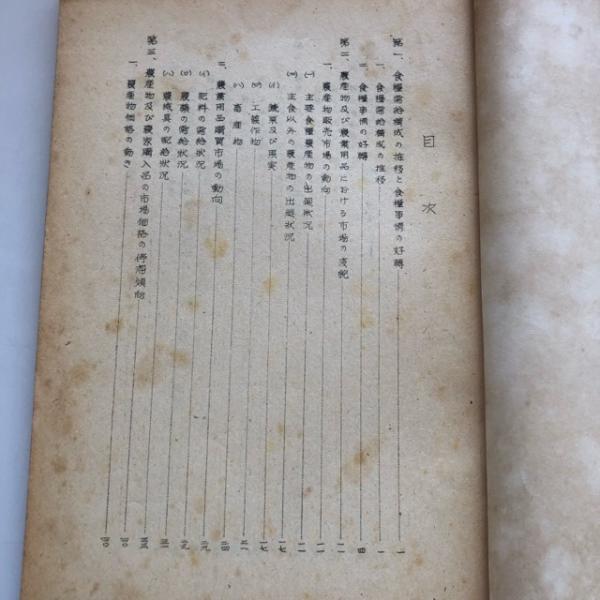 目次
第一、食糧需給構成の推移と食糧事情の好轉 一
一、食糧需給構成の推移 一
二、食糧事情の好轉 四
第二、農産物及び農業用品における市場の変貌 一一
一、農産物販売市場の動向 一一
(1) 主要食糧農産物の出廻状況 一一
(2) 主食以外の農産物の出廻状況 一七
(1) 蔬菜及び果実 一七
(2) 工芸作物
(3) 畜産物
二、農業用品購買市場の動向
(1) 肥料の需給状況
(2) 農薬の需給状況
(3) 農機具の配給状況
第三、農産物及び農家購入品の市場価格の
一、農産物価格の動き